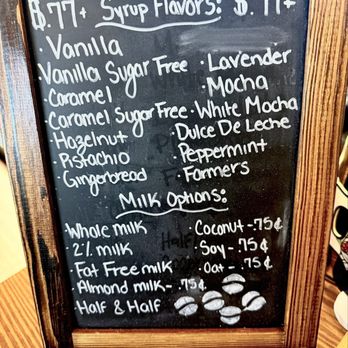 $.77+ Syrup Flavors: $.77+
· Vanilla
· Vanilla Sugar Free · Lavender
· Caramel · Mocha
· Caramel Sugar Free · White Mocha
· Hazelnut · Dulce De Leche
· Pistachio · Peppermint
· Gingerbread · Farmers
Milk Options:
· Whole milk · Coconut - .75¢
· 2% milk · Soy - .75¢
· Fat Free milk · Oat - .75¢
· Almond milk - .75¢
· Half & Half